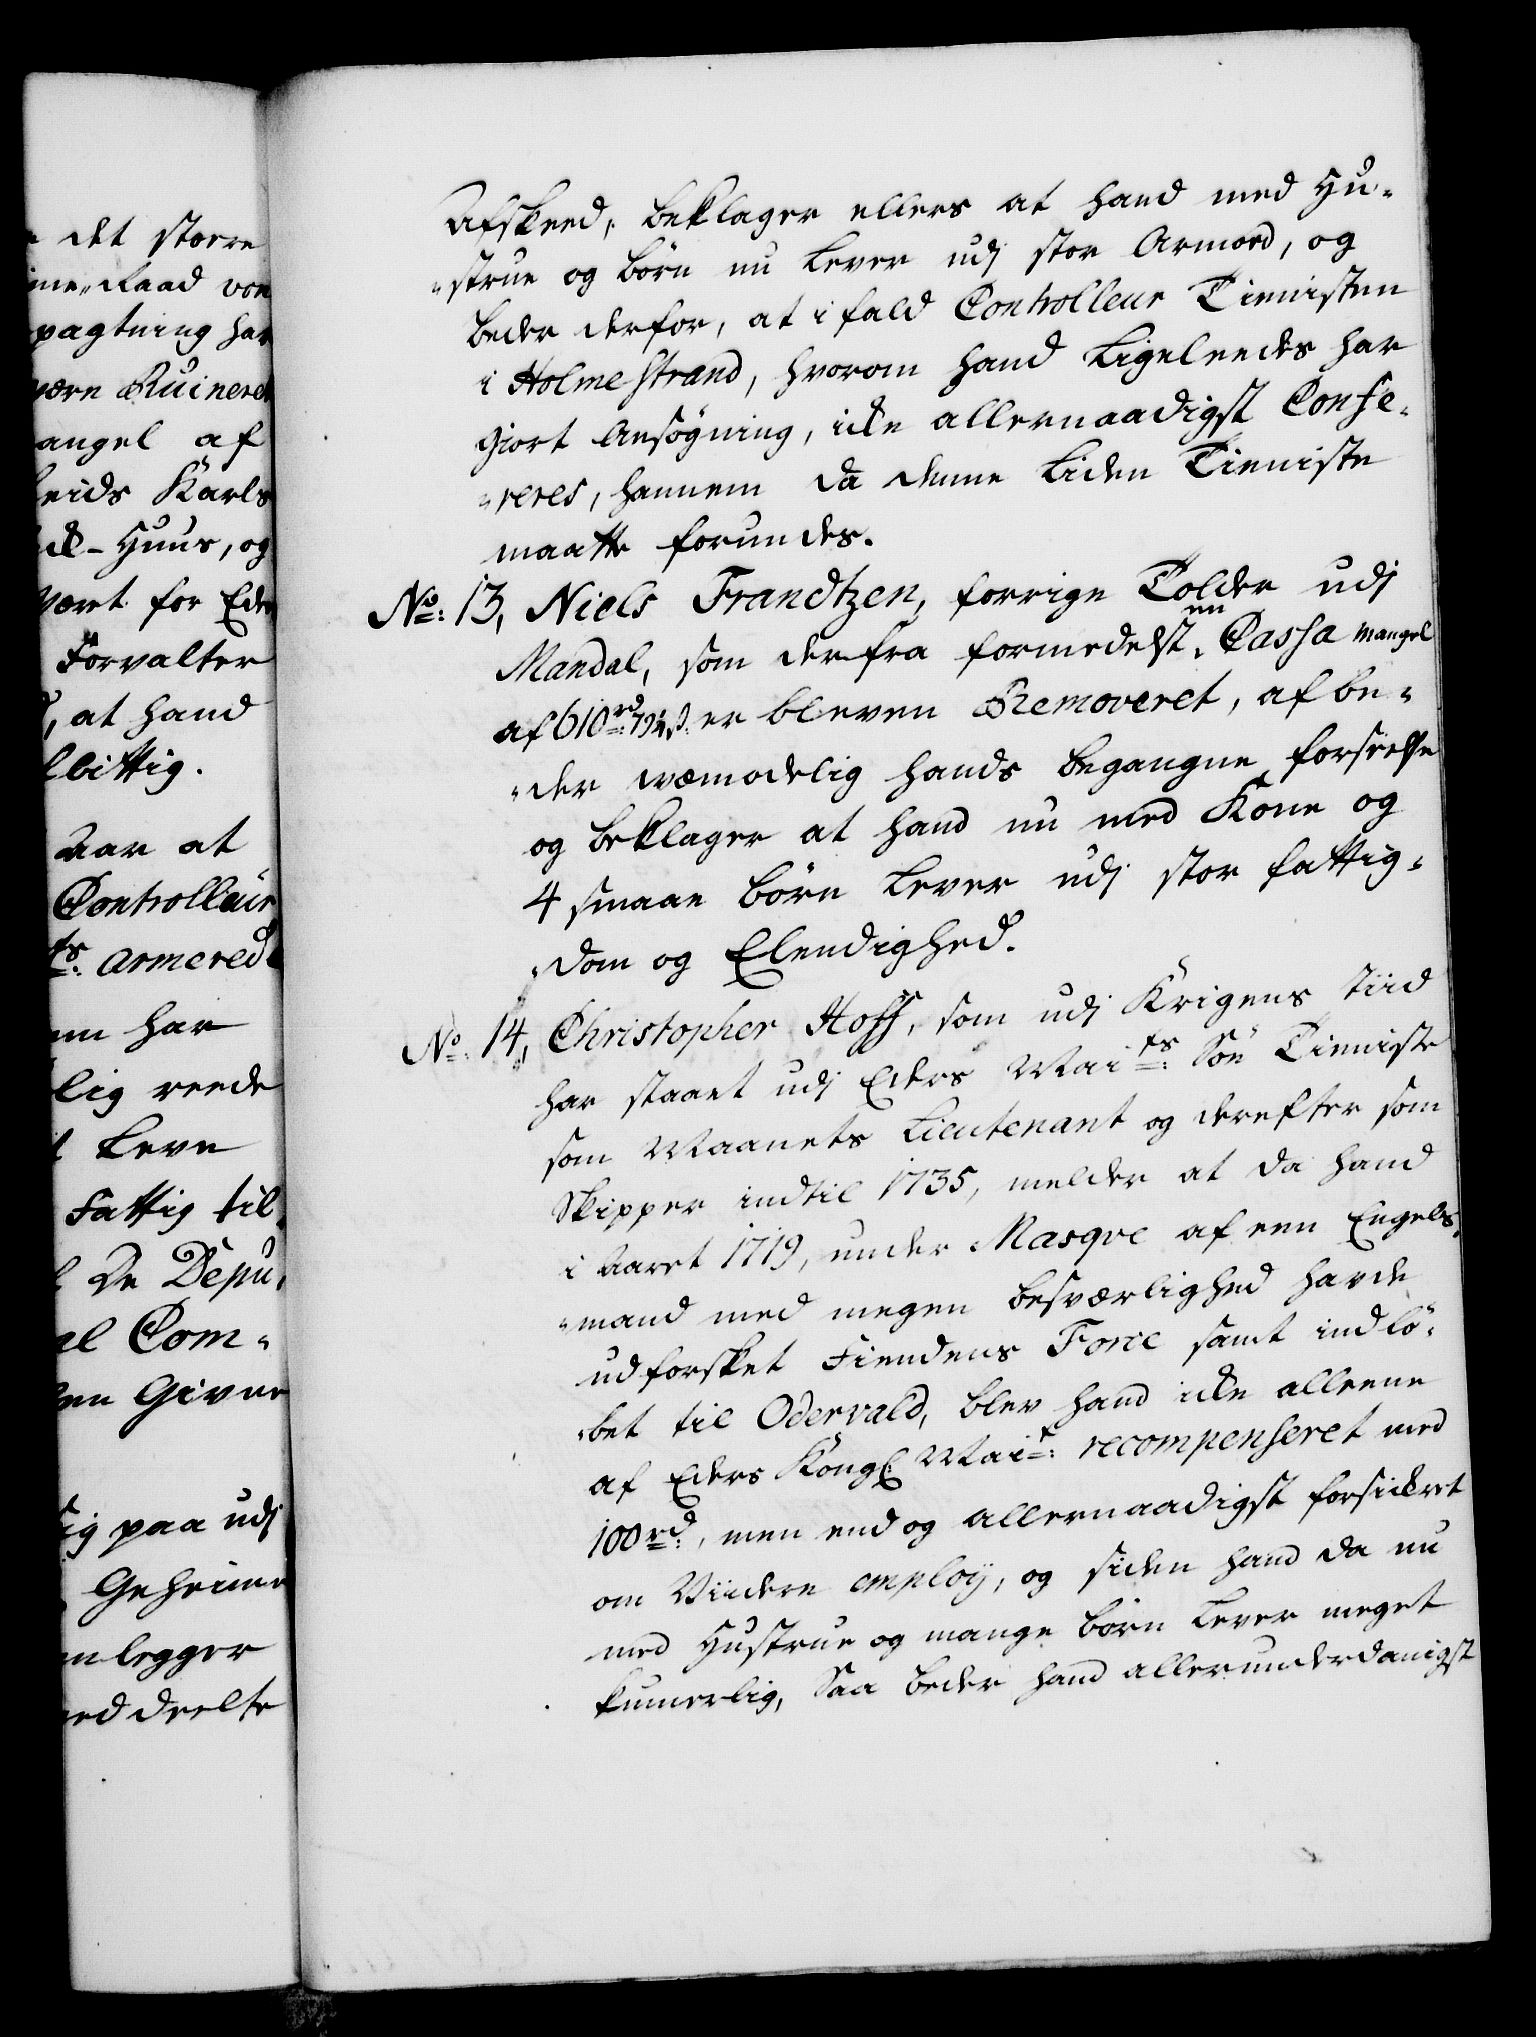 det større
Raad von
pagtning har
være Ruineret
angel af
Karls
Huus, og
Været for Eders
Forvalter
, at hand
lbittig.
Aar at
Controlleur
ts armerede
har
lig reede
Leve
Fattig til
De Depu-
Com-
Givne
paa udj
Geheime
legger
deelte
Afskeed, beklager ellers at hand med Hu-
-strue og børn nu lever udj stor Armoed, og
beder derfor, at i fald Controlleur Tienisten
i Holmestrand, hvorom hand Ligeleedes har
giort Ansøgning, icke allernaadigst Confe-
-reres, hannem da denne liden Tieniste
maatte forundes.
No: 13, Niels Frandtzen, forrige Tolder udj
Mandal, som derfra formedelst en Cassa mangel
af 610 rd er bleven Removeret, afbe-
-der wemodelig hands begangne forseelse
og beklager at hand nu med Kone og
4 smaae børn lever udj stor fattig-
-dom og Elendighed.
No: 14, Christopher Hoff, som udj Krigens tiid
har staaet udj Eders Maits: Søe Tieniste
som Maanets Lieutenant og derefter som
Skipper indtil 1735, melder at da hand
i Aaret 1719, under Masqve af een Engels-
-mand med megen besværlighed havde
udforsket Fiendens Force samt indlø-
-bet til Odervald, blev hand icke alleene
af Eders Kongl: Mait: recompenseret med
100 rd:, men endog allernaadigst forsickret
om Viidere employ, og siden hand da nu
med Hustrue og mange børn lever meget
kumerlig, Saa beder hand allerunderdanigst